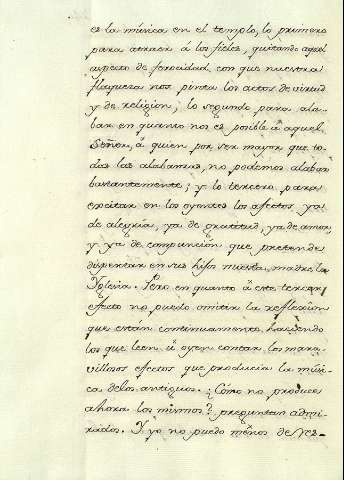 es la música en el templo, lo primero
para atraer á los fieles, quitando aquel
aspecto de ferocidad con que nuestra
flaqueza nos pinta los actos de virtud
y de religion; lo segundo para ala-
bar en quanto nos es posible á aquel
Señor, á quien por ser mayor que to-
das las alabanzas, no podemos alabar
bastantemente; y lo tercero para
excitar en los oyentes los afectos ya
de alegria, ya de gratitud, ya de amor
y ya de compuncion que pretende
dispertar en sus hijos nuestra madre la
Iglesia. Pero en quanto á este tercer
efecto no puedo omitir la reflexîon
que están continuamente haciendo
los que leen ú oyen contar los mara-
villosos efectos que producia la músi-
ca de los antiguos. ¿Cómo no produce
ahora los mismos? preguntan admi-
rados. Y yo no puedo ménos de res-